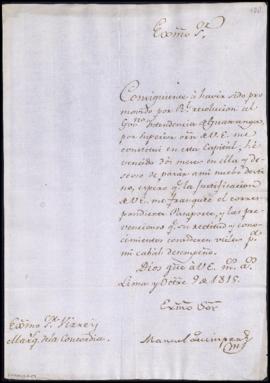 Exmo Sr.
Consiguiente á haver sido pro
movido por Rl. resolucion al
Govno. Intendencia de Guamanga,
por superior orn. de V.E. me
constituí en esta Capital, hé
vencido dos meses en ella y de
seoso de pasar á mi nuebo desti
no, espero q.e la justificacion
de V.E. me franqueé el corres
pondiente Pasaporte, y las pre
venciones q.e su rectitud y cono
cimientos consideren utiles p.a
mi cabál desempeño.
Dios gue. á V.E. m.s a.s
Lima y Octre. 9 de 1815.
Exmo Sor
Manuel Quimper
Exmo Sr. Virrey
Marq.s de la Concordia.